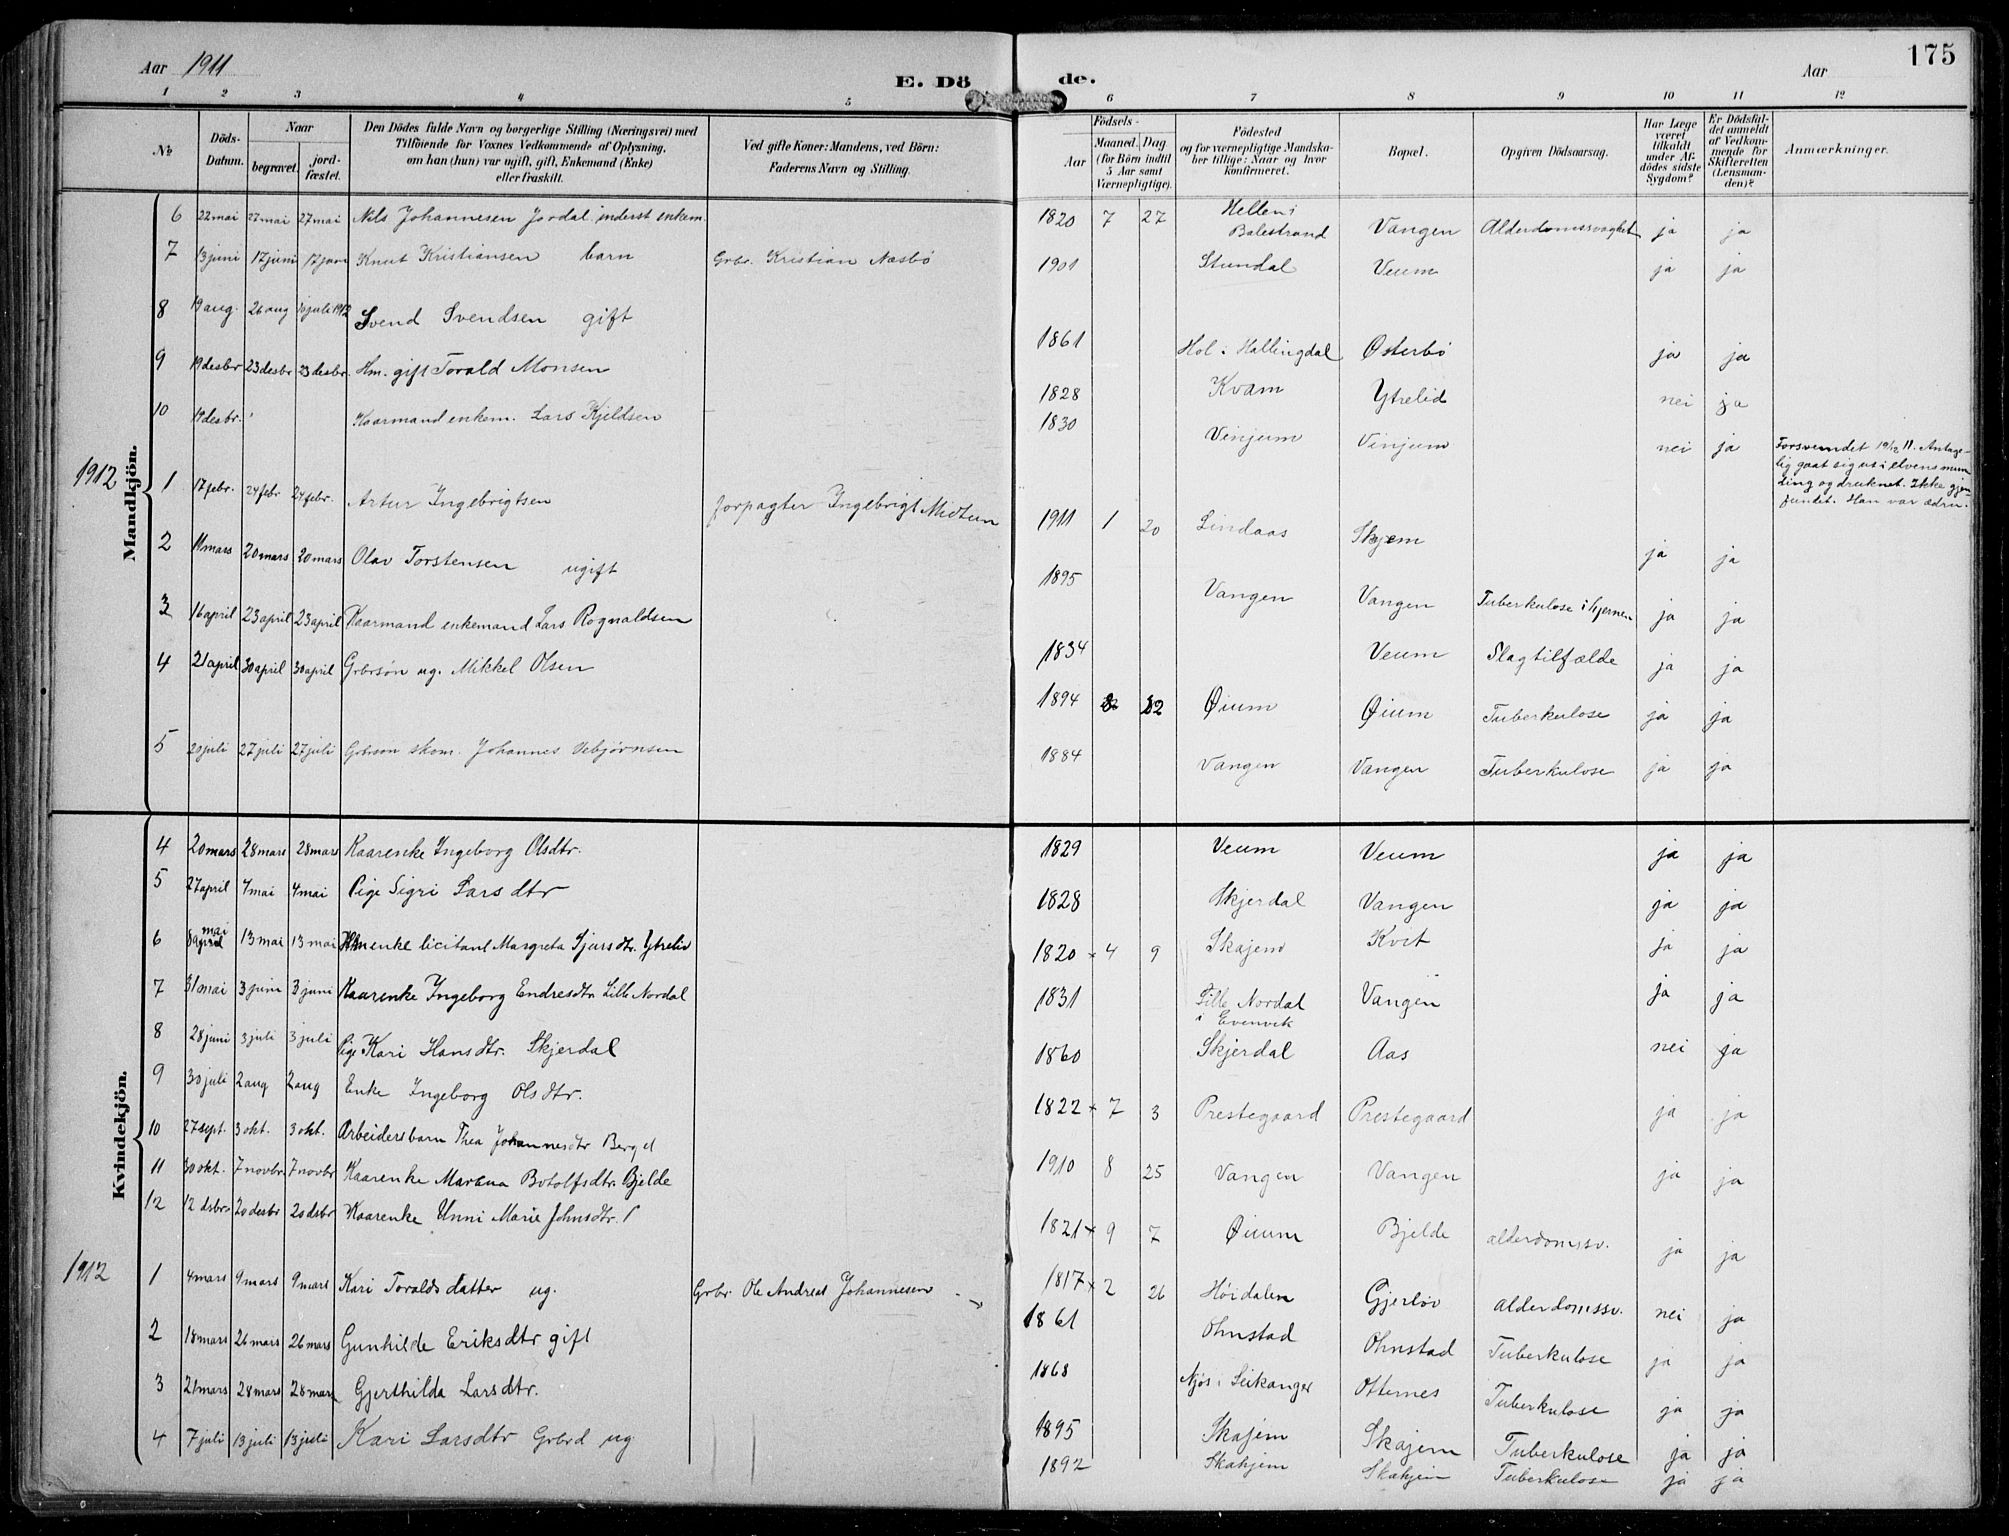 Aar 1911
E. Dö
de.
Aar
175
1 2 3 4 5 6 7 8 9 10 11 12
№
Döds-Datum.
Naar
begravet.
jord-fæstet.
Den Dödes fulde Navn og borgerlige Stilling (Næringsvei) med
Tilföiende for Voxnes Vedkommende af Oplysning,
om han (hun) var ugift, gift, Enkemand (Enke)
eller fraskilt.
Ved gifte Koner: Mandens, ved Börn:
Faderens Navn og Stilling.
Födsels-
Aar
Maaned. Dag
(for Börn indtil
5 Aar samt
Værnepligtige).
Födested
og for værnepligtige Mandska-
ber tillige: Naar og hvor
konfirmeret.
Bopæl.
Opgiven Dödsaarsag.
Har Læge
været
tilkaldt
under Af-
dödes sidste
Sygdom?
Er Dödsfal-
det anmeldt
af Vedkom-
mende for
Skifteretten
(Lensman-
den)?
Anmærkninger.
Mandkjön.
6 22 mai 27 mai 27 mai Nils Johannesen Jordal, inderst enkem. 1820 7 27 Hellen i Balestrand Vangen Alderdomssvaghet ja ja
7 13 juni 17 juni 17 juni Knut Kristiansen barn Grbr. Kristian Næsbö 1901 Stundal Veum ja ja
8 19 aug. 26 aug 10 juli 1912 Svend Svendsen gift 1861 Hol i Hallingdal Østerbö ja ja
9 19 desbr 23 desbr 23 desbr. Hm. gift Torald Monsen 1828 Kvam Ytrelid nei ja
10 19 desbr. Kaarmand enkem. Lars Kjeldsen 1830 Vinjum Vinjum nei ja Forsvundet 19/12 11. Antage-
lig gaat sig us i elvens mun
ding og druknet. Ikke gjen-
fundet. Han var ædru.
1912
1 17 febr. 24 febr 24 febr. Artur Ingebrigtsen forpagter Ingebrigt Midtun 1911 1 20 Lindaas Skjem ja ja
2 11 mars 20 mars 20 mars Olav Torstensen ugift 1895 Vangen Vangen Tuberkulose i hjernen ja ja
3 16 april 23 april 23 april Kaarmand enkemand Lars Rognaldsen 1834 Veum Slagtilfælde ja ja
4 21 april 30 april 30 april Grbrsøn ug. Mikkel Olsen 1894 8 12 Øium Øium Tuberkulose ja ja
5 20 juli 27 juli 27 juli Grbrsøn skom. Johannes Vebjørnsen 1884 Vangen Vangen Tuberkulose ja ja
Kvindekjön.
4 20 mars 28 mars 28 mars Kaarenke Ingeborg Olsdtr. 1829 Veum Veum ja ja
5 27 april 4 mai 4 mai Pige Sigri Larsdtr 1828 Skjerdal Vangen ja ja
6 8 april mai 13 mai 13 mai Hm enke licitant Margreta Sjursdtr. Ytreliv 1820 × 4 9 Skajem Kvit ja ja
7 31 mai 3 juni 3 juni Kaarenke Ingeborg Endresdtr Lille Nordal 1831 Lille Nordal i Evenvik Vangen ja ja
8 28 juni 3 juli 3 juli Pige Kari Hansdtr. Skjerdal 1860 Skjerdal Aas nei ja
9 30 juli 2 aug 2 aug Enke Ingeborg Olsdtr. 1822 × 7 3 Prestegaard Prestegaard ja ja
10 27 sept. 3 okt. 3 okt. Arbeidersbarn Thea Johannesdtr Berget 1910 8 25 Vangen Vangen ja ja
11 30 okt. 7 novbr. 7 novbr Kaarenke Martha Botolfsdtr. Bjelde 1821 × 9 7 Øium Bjelde alderdomssv. ja ja
12 12 dsbr. 20 desbr 20 dsbr Kaarenke Unni Marie Johnsdtr. 1817 × 2 26 Høidalen Gjerløv alderdomssv. nei ja
1912
1 4 mars 9 mars 9 mars Kari Toraldsdatter ug. Grbr. Ole Andreas Johannesen 1861 Ohnstad Ohnstad Tuberkulose ja ja
2 18 mars 26 mars 26 mars Gunhilde Eriksdtr gift 1868 Njøs i Leikanger Otternes Tuberkulose ja ja
3 21 mars 28 mars 28 mars Gjerthilda Larsdtr. 1895 Skajem Skajem Tuberkulose ja ja
4 7 juli 13 juli 13 juli Kari Larsdtr Grbrd ug 1892 Skahjem Skahjem Tuberkulose ja ja